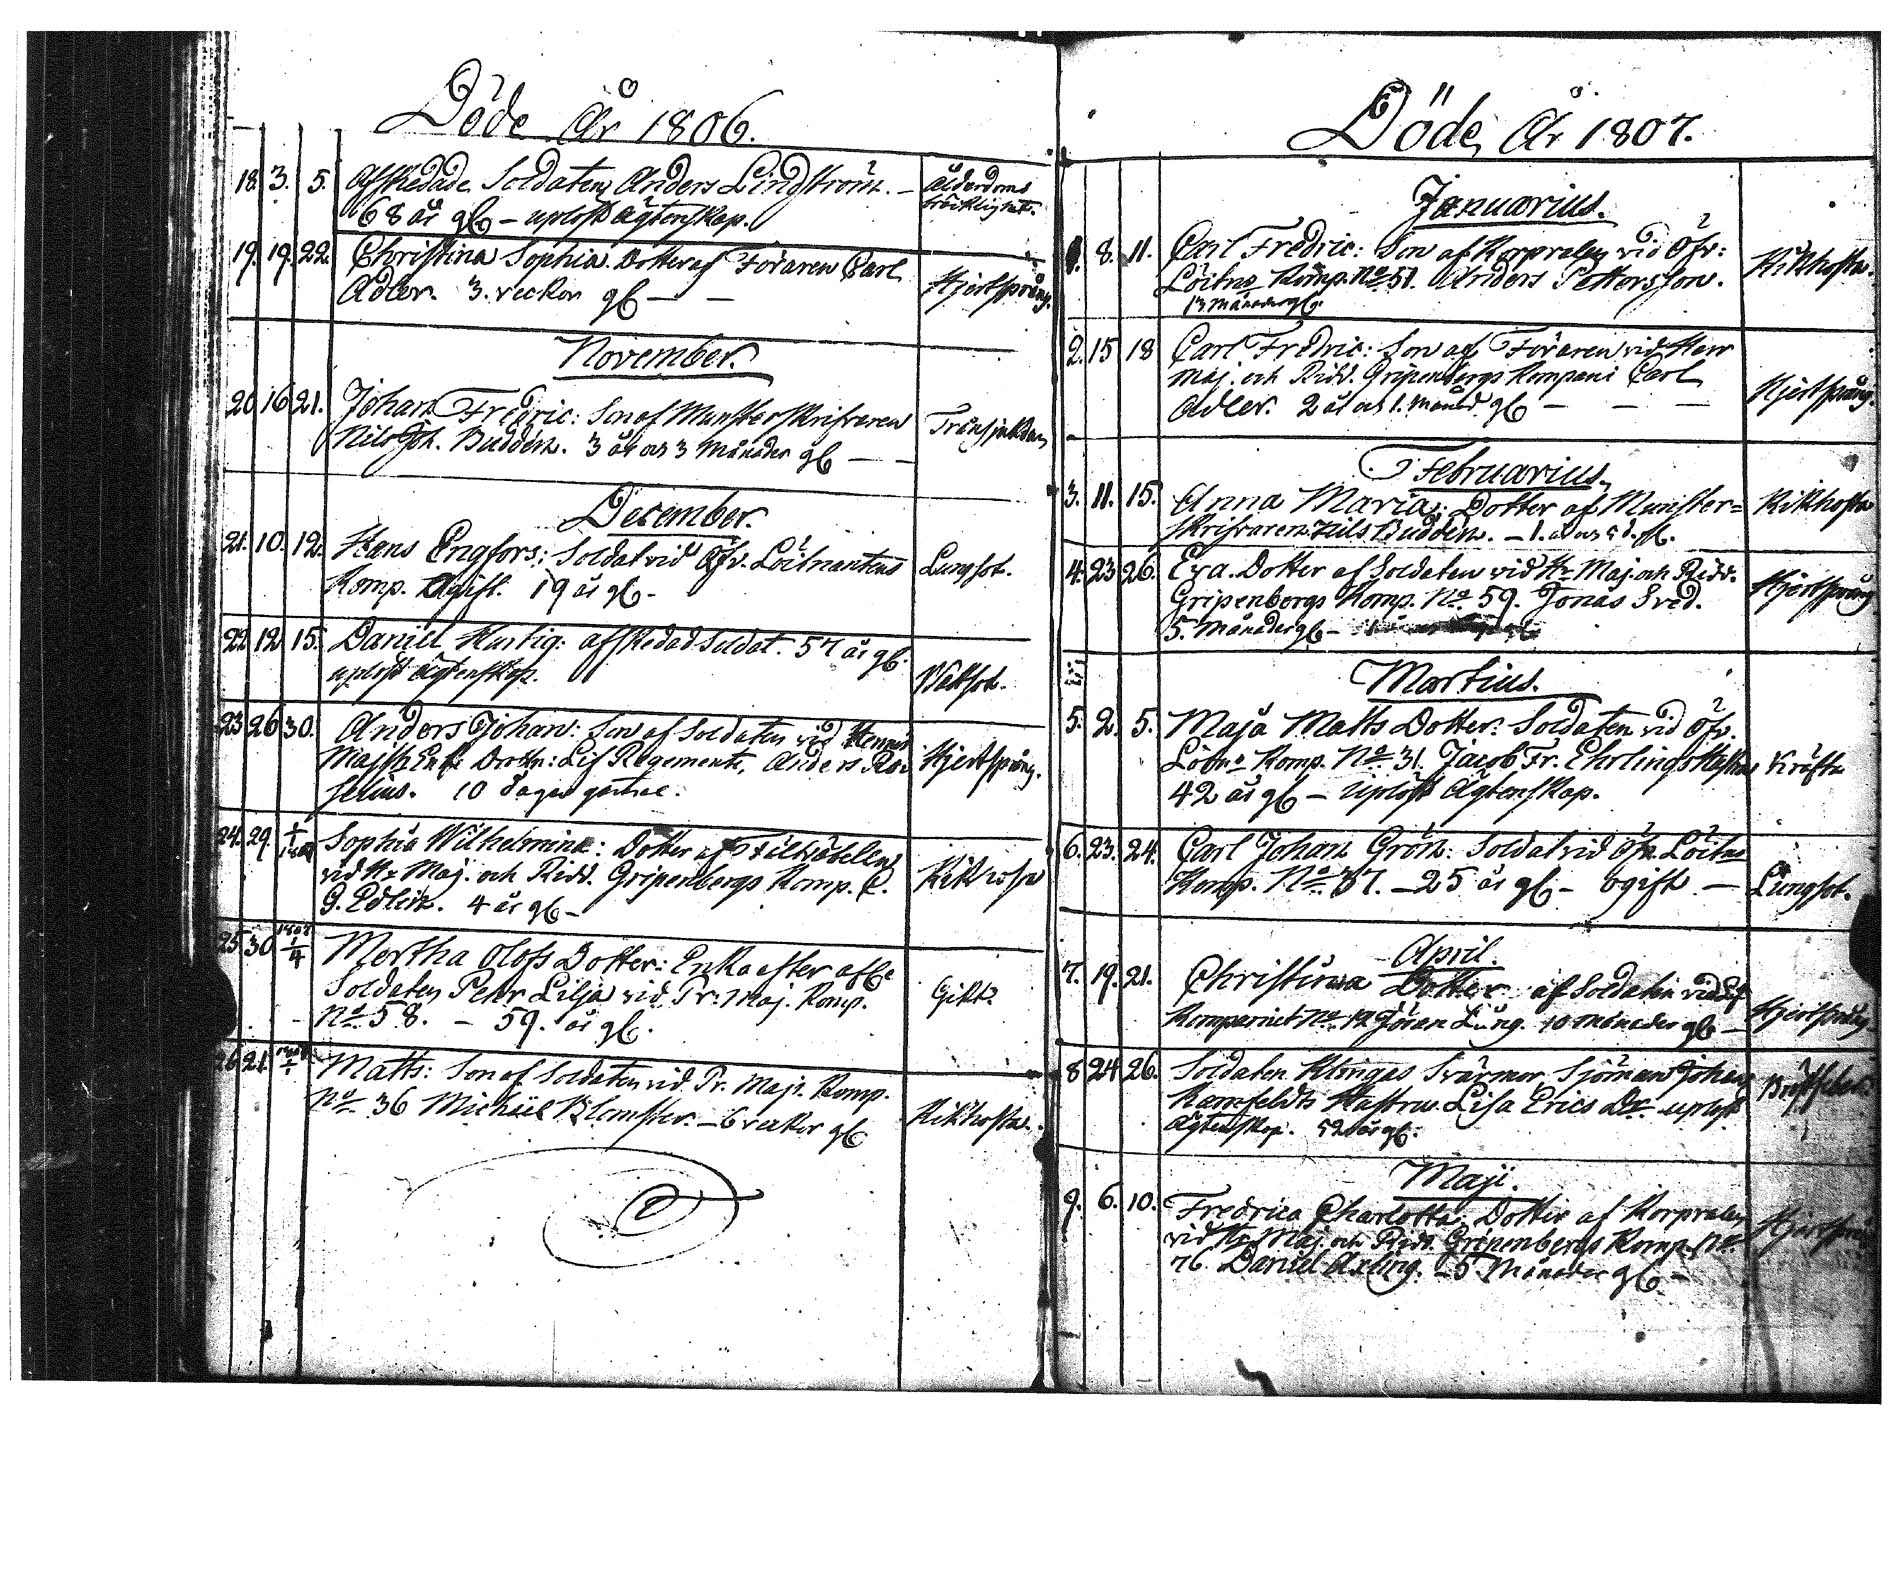 Döde År 1806.
18. 3. 5. Afskedade Soldaten Anders Lindström. – Ålderdoms
68 år gl. – uplöst Ägtenskap. bräcklighet.
19. 19. 22. Christina Sophia. Dotter af Föraren Carl
Adler. 3. veckor gl. – – Hjertsprång.
November.
20 16 21. Johan Fredric: Son af Munsterskrifvaren
Nils Joh. Buddén. 3 år och 3 Månader gl. – – Transjukdan
December.
21. 10. 12. Hans Engfors: Soldat vid Öfv. Löitnantens Lungsot.
Komp. Ogift. 19 år gl. –
22 12 15. Daniel Hurtig: afskedad Soldat. 57 år gl.
uplöst ägtenskap. Vattsot.
23 26 30. Anders Johan: Son af Soldaten vid Hennes
Majsts Enk: Drottn: Lif Regemente, Anders Ro= Hjertsprång.
selius. 10 dagar gammal.
24. 29. Sophia Wilhelmina: Dotter af Fältväbelen
vid Hr Maj. och Ridd. Gripenbergs Komp. C. Kikhosta
G. Edlein. 4 år gl. –
25 30 1807 1/4 Mertha Olofs Dotter: Enka efter afl:e
Soldaten Pehr Lilja vid Pr: Maj. Komp. Gikt.
No 58. – 59. år gl.
26 21. Matts: Son af Soldaten vid Pr. Majs. Komp.
No 36 Michael Blomster. – 6 veckor gl. Kikhosta.
Döde År 1807.
Januarius.
1. 8. 11. Carl Fredric: Son af Korpralen vid Öfv: Kikhosta.
Löitns Komp. No 51. Anders Pettersson.
13 månader gl.
2. 15 18 Carl Fredric: Son af Föraren vid Herr
Maj. och Ridd. Gripenbergs Kompani Carl Hjertsprång.
Adler. 2 år och 1. Månad gl. – – –
Februarius.
3. 11. 15. Anna Maria: Dotter af Munster= Kikhosta
skrifvaren Nils Buddén. – 1. år och
4. 23 26. Eva. Dotter af Soldaten vid Hr Maj. och Ridd. Hjertsprång
Gripenbergs Komp. No 59. Jonas Sved.
5. Månader gl. –
Martius.
5. 2. 5. Maja Matts Dotter: Soldaten vid Öfv.
Löitns Komp. No 31. Jacob Fr. Ehrlings Hustru Kräfta
42 år gl. – uplöst Ägtenskap.
6. 23. 24. Carl Johan Grön: Soldat vid Öfv. Löitns
Komp. No 37. – 25 år gl. – ogift. – Lungsot.
April.
7. 19. 21. Christina Dotter af Soldaten vid Lif
Kompaniet No 12 Jöran Ljung. 10 Månader gl. – Hjertsprång
8 24 26. Soldaten Klingas Svärmor Sjöman Johan Bröstfeber.
Ramfeldts Hustru Lisa Erics Dr – uplöst
Ägtenskap. 52 år gl.
Maji.
9. 6. 10. Fredrica Charlotta: Dotter af Korpralen Hjertsprång
vid Hr Maj. och Ridd. Gripenbergs Komp. No
76 Daniel Axling. – 5. Månader gl. –